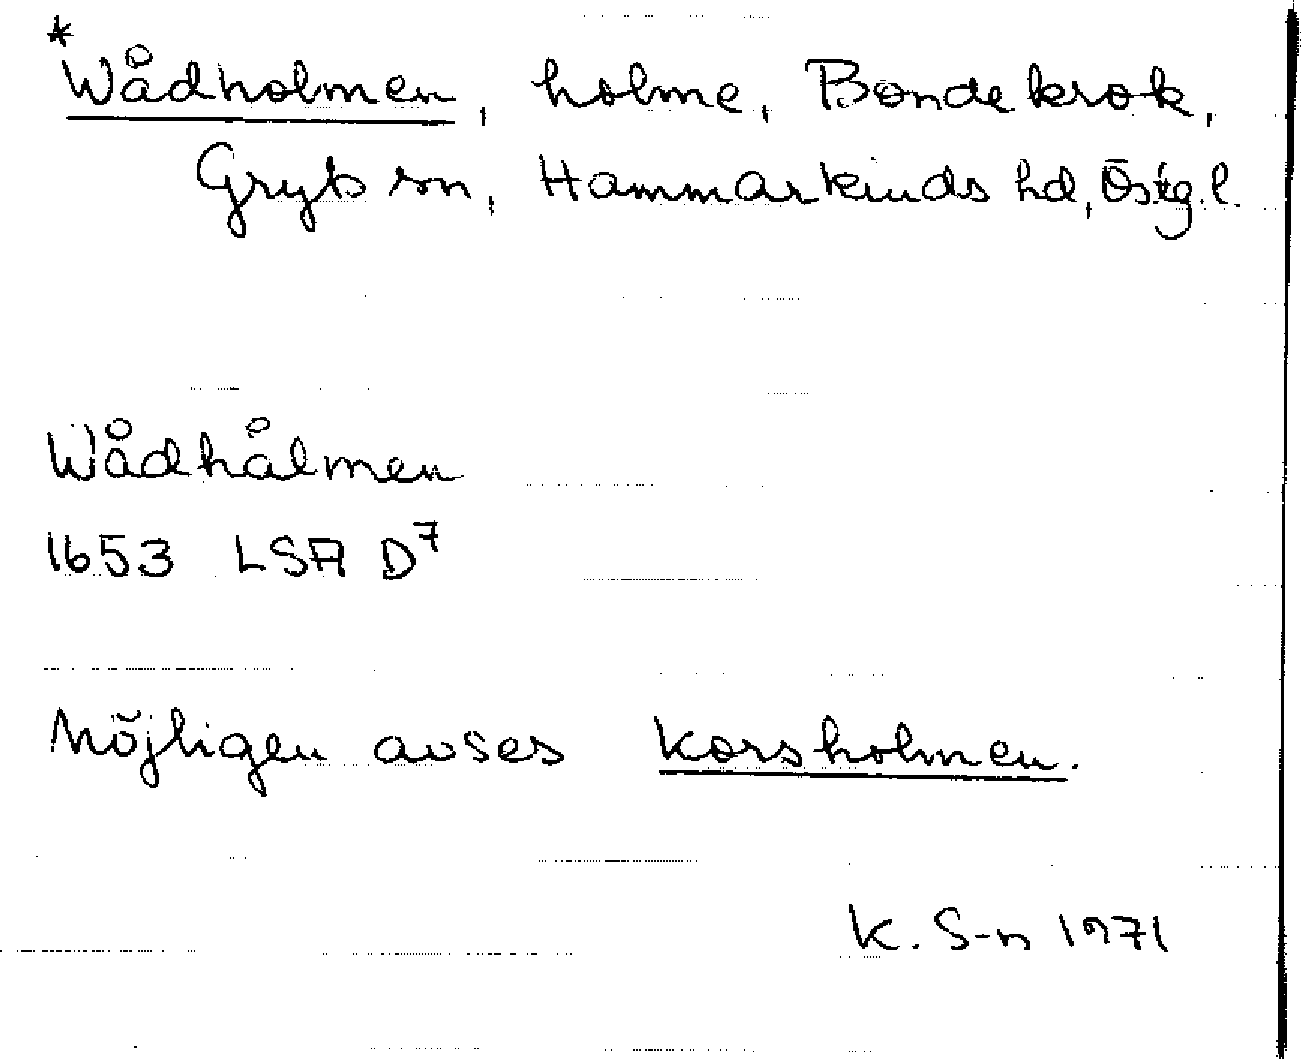 *Wådholmen, holme, Bondekrok,
Gryts sn, Hammarkinds hd, Östg.l.
Wådhålmen
1653 LSA D7
Möjligen avses Korsholmen.
K. S-n 1971